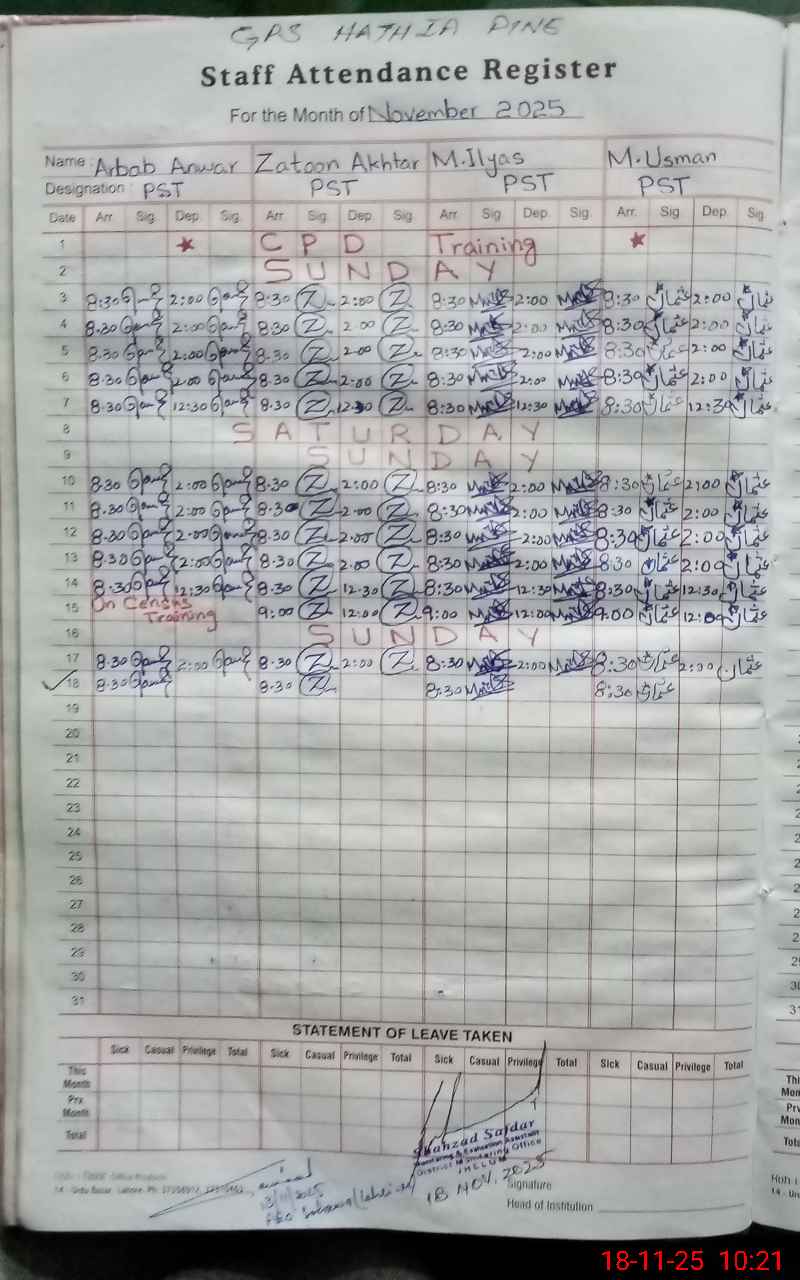 GPS HATHIA PINE
Staff Attendance Register
For the Month of November 2025
Name : Arbab Anwar Zatoon Akhtar M.Ilyas M.Usman
Designation : PST PST PST PST
Date Arr. Sig. Dep. Sig. Arr. Sig. Dep. Sig. Arr. Sig. Dep. Sig. Arr. Sig. Dep. Sig.
1 ★ CPD Training ★
2 SUNDAY
3 8:30 2:00 8.30 Z 2:00 Z 8:30 2:00 8:30 عثمان 2:00 عثمان
4 8.30 2:00 8.30 Z 2.00 Z 8:30 2:00 8:30 عثمان 2:00 عثمان
5 8.30 2:00 8.30 Z 2.00 Z 8:30 2:00 8:30 عثمان 2:00 عثمان
6 8.30 2.00 8.30 Z 2.00 Z 8:30 2:00 8:30 عثمان 2:00 عثمان
7 8.30 12:30 8.30 Z 12.30 Z 8:30 12:30 8:30 عثمان 12:30 عثمان
8 SATURDAY
9 SUNDAY
10 8.30 2:00 8.30 Z 2:00 Z 8:30 2:00 8:30 عثمان 2:00 عثمان
11 8.30 2:00 8.30 Z 2.00 Z 8:30 2:00 8:30 عثمان 2:00 عثمان
12 8.30 2.00 8.30 Z 2.00 Z 8:30 2:00 8:30 عثمان 2:00 عثمان
13 8.30 2:00 8.30 Z 2.00 Z 8:30 2:00 8:30 عثمان 2:00 عثمان
14 8.30 12:30 8.30 Z 12.30 Z 8:30 12:30 8:30 عثمان 12:30 عثمان
15 On Census Training 9:00 Z 12:00 Z 9:00 12:00 9:00 عثمان 12:00 عثمان
16 SUNDAY
17 8.30 2:00 8.30 Z 2:00 Z 8:30 2:00 8:30 عثمان 2:00 عثمان
18 8.30 8.30 Z 8:30 8:30 عثمان
19
20
21
22
23
24
25
26
27
28
29
30
31
STATEMENT OF LEAVE TAKEN
Sick Casual Privilege Total Sick Casual Privilege Total Sick Casual Privilege Total Sick Casual Privilege Total
This Month
Prx Month
Total
Shahzad Safdar
Monitoring & Evaluation Assistant
District Monitoring Office
JHELUM
18 NOV, 2025
14 - Urdu Bazar, Lahore. Ph:
Signature
Head of Institution
18-11-25 10:21